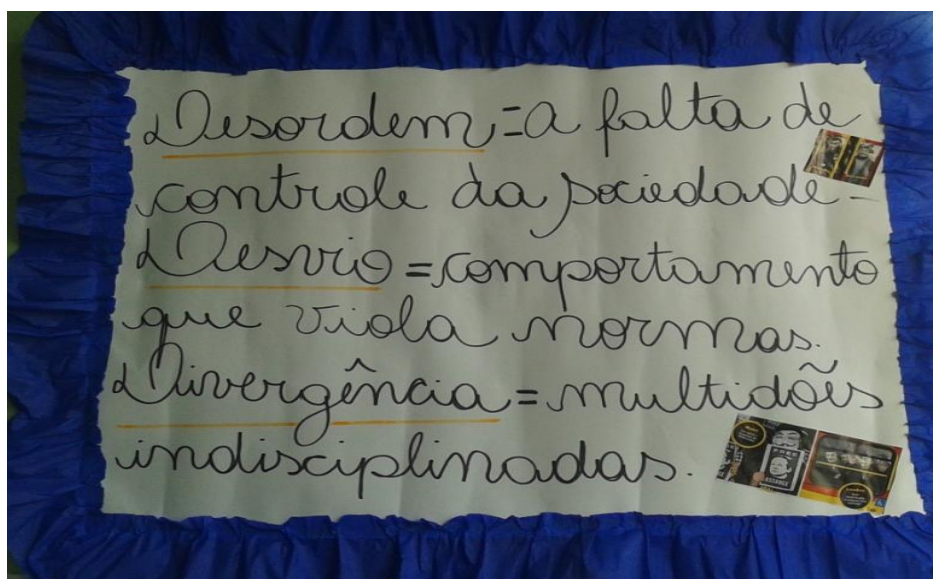 Desordem=a falta de
controle da sociedade-
Desvio=comportamento
que viola normas.
Divergência=multidões
indisciplinadas.
FREE
ASSANGE